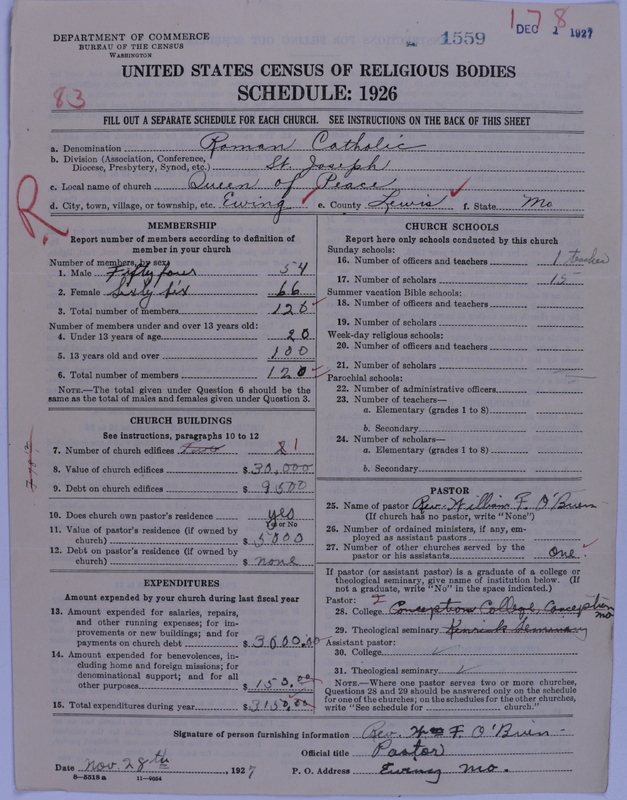 178
DEPARTMENT OF COMMERCE
BUREAU OF THE CENSUS
WASHINGTON
1559
DEC 1 1927
UNITED STATES CENSUS OF RELIGIOUS BODIES
SCHEDULE: 1926
83
FILL OUT A SEPARATE SCHEDULE FOR EACH CHURCH. SEE INSTRUCTIONS ON THE BACK OF THIS SHEET
a. Denomination Roman Catholic
b. Division (Association, Conference, Diocese, Presbytery, Synod, etc.) St Joseph
c. Local name of church Queen of Peace
d. City, town, village, or township, etc. Ewing e. County Lewis f. State Mo
R
MEMBERSHIP
Report number of members according to definition of member in your church
Number of members, by sex:
1. Male Fifty four 54
2. Female Sixty six 66
3. Total number of members 120
Number of members under and over 13 years old:
4. Under 13 years of age 20
5. 13 years old and over 100
6. Total number of members 120
NOTE.—The total given under Question 6 should be the same as the total of males and females given under Question 3.
CHURCH BUILDINGS
See instructions, paragraphs 10 to 12
7. Number of church edifices 2 1
8. Value of church edifices $ 30,000
9. Debt on church edifices $ 9500
10. Does church own pastor's residence yes
(Yes or No)
11. Value of pastor's residence (if owned by church) $ 5000
12. Debt on pastor's residence (if owned by church) $ none
EXPENDITURES
Amount expended by your church during last fiscal year
13. Amount expended for salaries, repairs, and other running expenses; for improvements or new buildings; and for payments on church debt $ 3000.00
14. Amount expended for benevolences, including home and foreign missions; for denominational support; and for all other purposes $ 150.00
15. Total expenditures during year $ 3150.00
CHURCH SCHOOLS
Report here only schools conducted by this church
Sunday schools:
16. Number of officers and teachers 1 teacher
17. Number of scholars 15
Summer vacation Bible schools:
18. Number of officers and teachers
19. Number of scholars
Week-day religious schools:
20. Number of officers and teachers
21. Number of scholars
Parochial schools:
22. Number of administrative officers
23. Number of teachers—
a. Elementary (grades 1 to 8)
b. Secondary
24. Number of scholars—
a. Elementary (grades 1 to 8)
b. Secondary
PASTOR
25. Name of pastor Rev. William F. O'Brien
(If church has no pastor, write "None")
26. Number of ordained ministers, if any, employed as assistant pastors
27. Number of other churches served by the pastor or his assistants One
If pastor (or assistant pastor) is a graduate of a college or theological seminary, give name of institution below. (If not a graduate, write "No" in the space indicated.)
Pastor:
28. College Conception College, Conception Mo
29. Theological seminary Kenrick Seminary
Assistant pastor:
30. College
31. Theological seminary
NOTE.—Where one pastor serves two or more churches, Questions 28 and 29 should be answered only on the schedule for one of the churches; on the schedules for the other churches, write "See schedule for ........ church."
Signature of person furnishing information Rev. Wm F. O'Brien
Official title Pastor
Date Nov. 28th, 1927 P. O. Address Ewing Mo.
8-5318a 11-9054